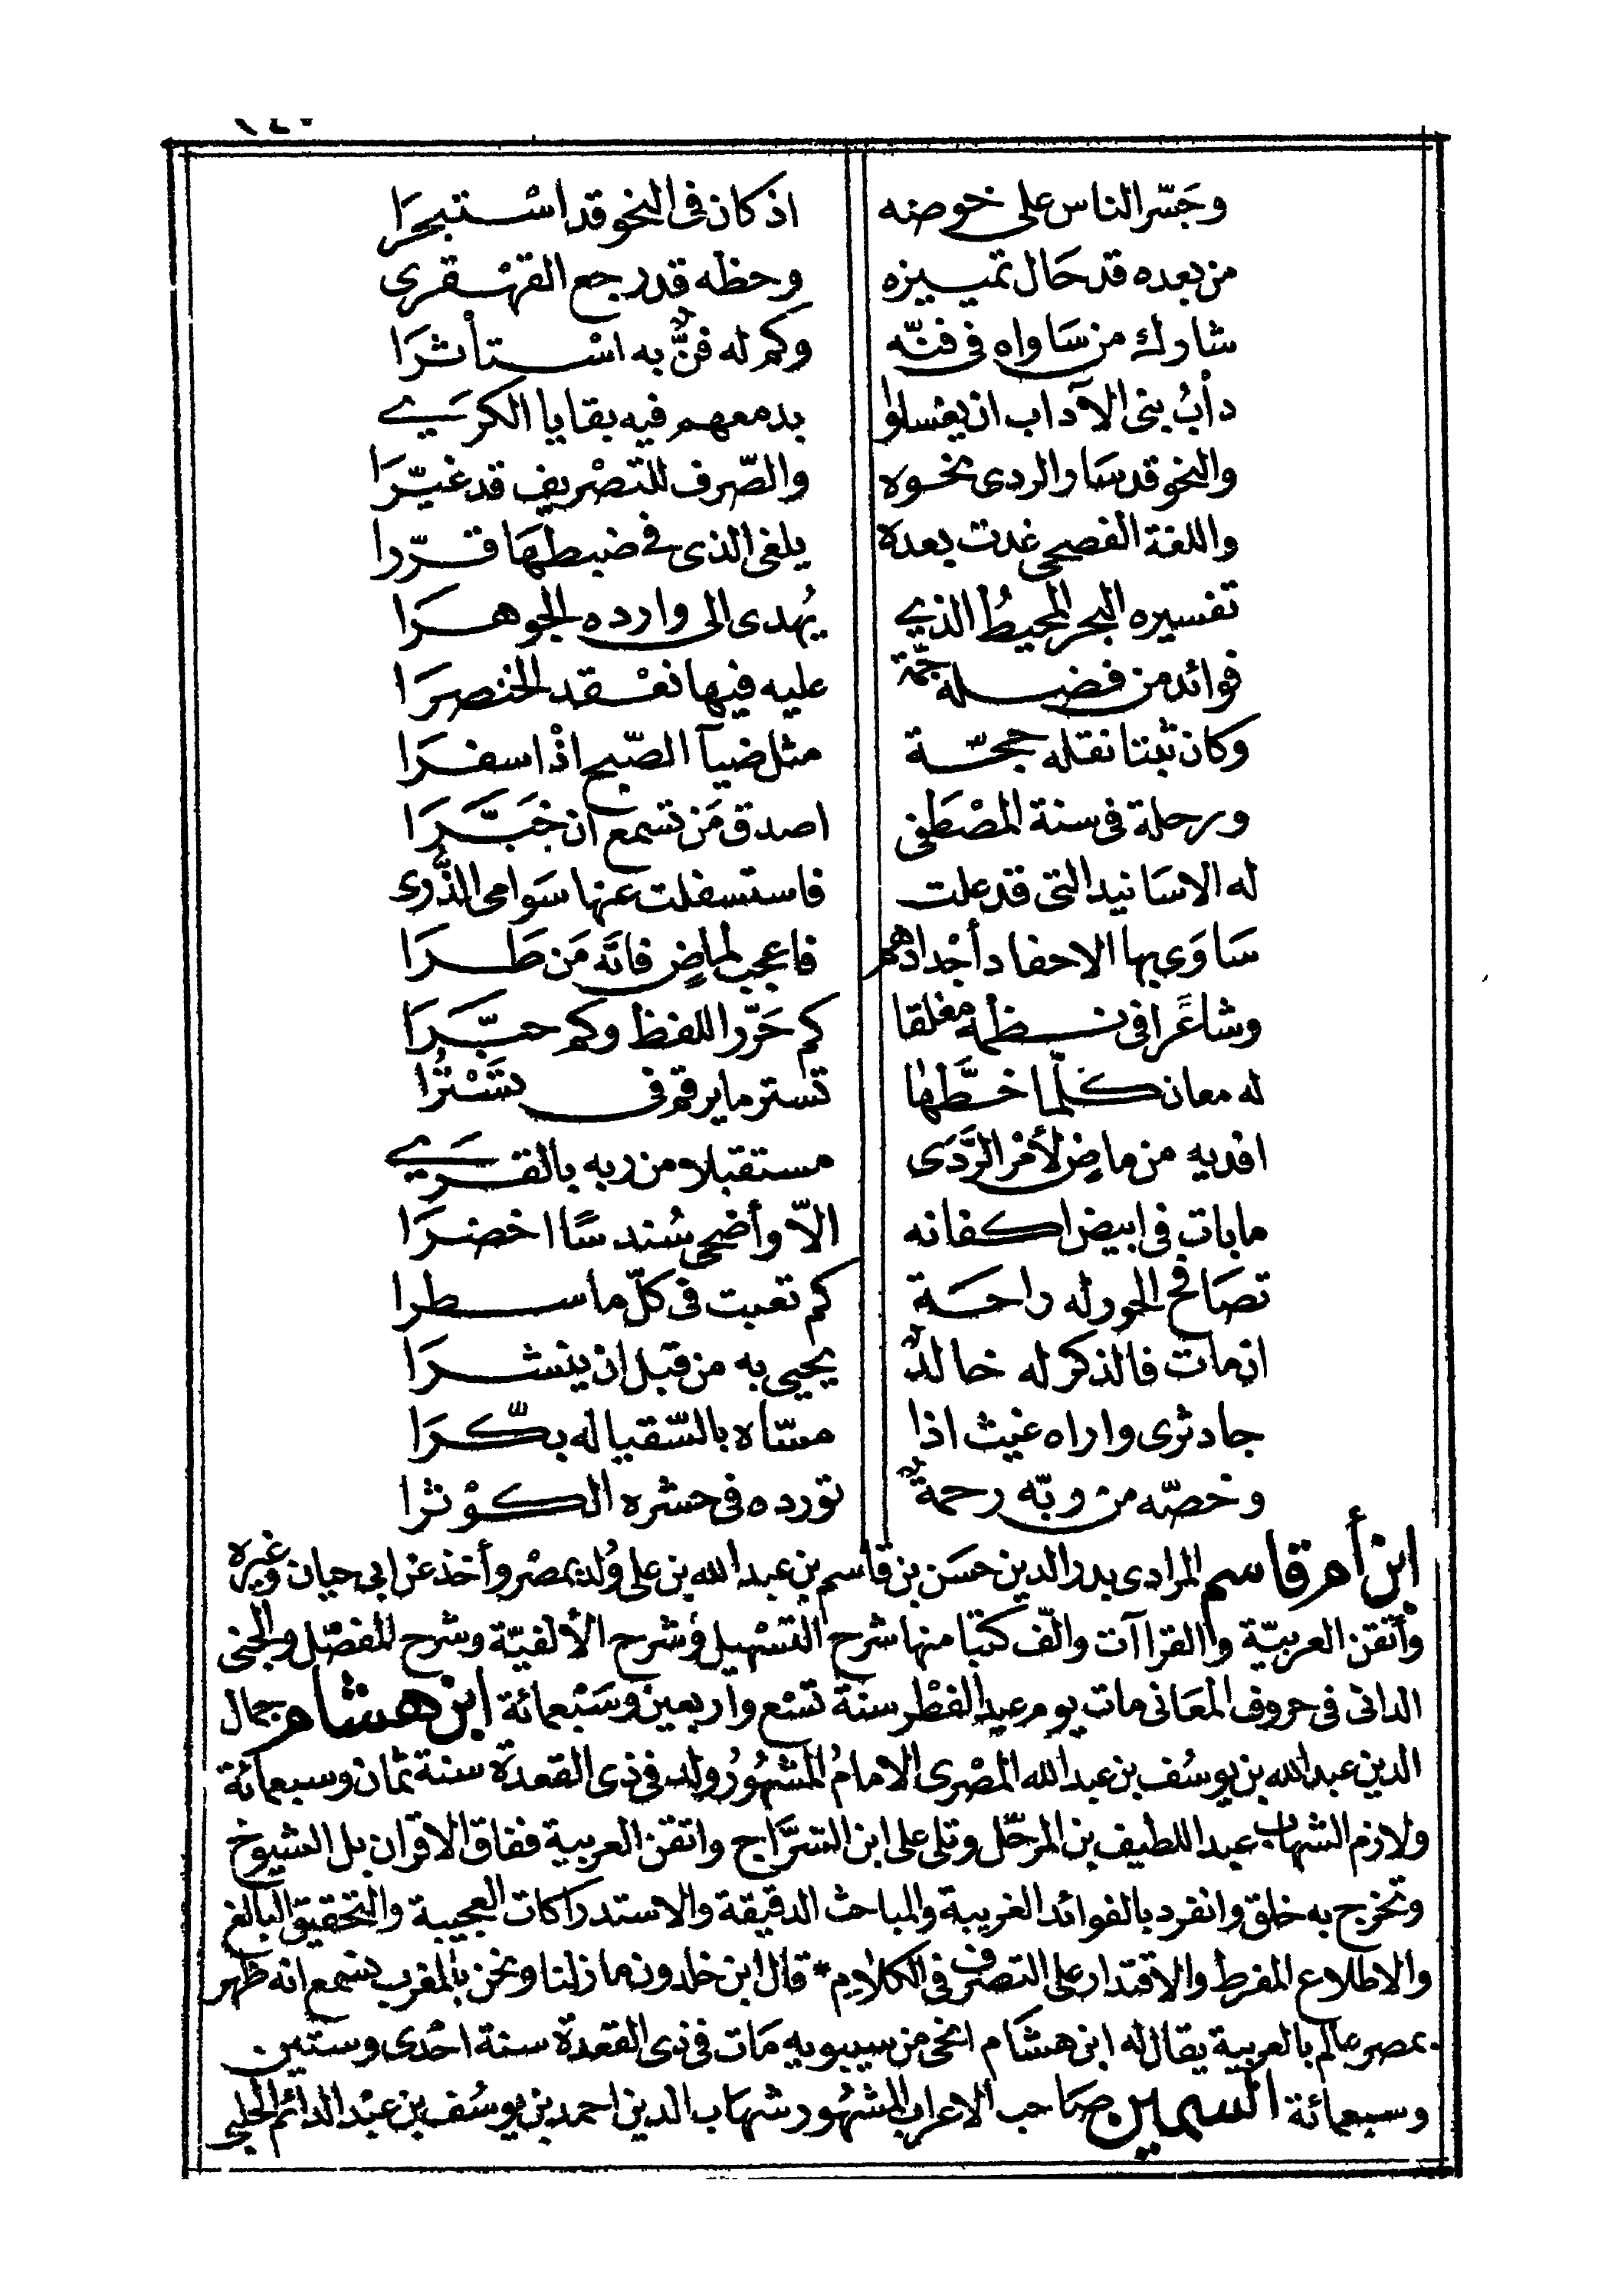 وجَسّر الناس على خوضه اذ كان فى النحو قد اسْتبحرَا
من بعده قد حَال تمييزه وحظه قد رجع القهْقرى
شارك من سَاواه فى فنّه وكم له فنٌّ به اسْتأثرَا
دأبُ بنى الآداب ان يغسلوا بدمعهم فيه بقايا الكرَي
والنحو قد سَار الردى نحوه والصّرف للتصْريف قد غيّرَا
واللغة الفصحى غدت بعده يلغى الذى فى ضبطهَا قرّرا
تفسيره البحر المحيطُ الذي يُهدى الى وارده الجوهرَا
فوائد من فضله جمّة عليه فيها نعْقد الخنصرَا
وكان ثبتا نقله حجّة مثل ضيآ الصّبح اذْا اسفرَا
ورحلة فى سنة المصْطَفى اصدق مَن تسمع ان خَبَّرَا
له الاسَانيد التى قد علت فاستسفلت عنها سَوامى الذُّرى
سَاوَى بها الاحفاد أجْدادهم فاعجب لماضٍ فاتَه مَن طَرَا
وشاعرًا فى نظمه مفلقا كم حَرّر اللفظ وكم حبّرَا
له معان كلّما خطَّهَا تستر ما يرقم فى تسْترُا
افديه من ماضٍ لأمْر الرَّدَى مستقبلا من ربه بالقرَي
ما بات فى ابيض اكفانه الاّ وأضحى سُندسًا اخضرَا
تصَافح الحور له راحَة كم تعبت فى كلّ ما سطرا
ان مات فالذكر له خالدٌ يحيى به من قبل ان ينشرَا
جاد ثرى واراه غيث اذا مسّاه بالسّقيا له بكّرَا
وخصّه من ربّه رحمةٌ تورده فى حشره الكوْثرا
ابن أم قاسم المرادى بدر الدين حسَن بن قاسم بن عبد الله بن على وُلد بمصْر وأخذ عن ابى حيان وغيره
وأتقن العربيّة والقراآت والّف كتبًا منها شرح التسْهيل وشرح الألفيّة وشرح المفصّل والجنى
الدانى فى حروف المعَانى مات يوم عيد الفطْر سنة تسْع واربعين وسَبْعمائة ابن هشام جمال
الدين عبد الله بن يوسُف بن عبد الله المصْرى الامامُ المشهُورُ ولد فى ذى القعدة سنة ثمان وسبعمائة
ولازم الشهاب عبد اللطيف بن المرحّل وتلى على ابن السَّرَّاج واتقن العربية ففاق الاقران بل الشيوخ
وتخرج به خلق وانفرد بالفوائد الغريبة والمباحث الدقيقة والاستدراكات العجيبة والتحقيق البالغ
والاطلاع المفرط والاقتدار على التصرف فى الكلام * قال ابن خلدون ما زلنا ونحن بالمغرب نسمع انه ظهر
بمصر عالم بالعربية يقال له ابن هشَام انحى من سيبويه مَات فى ذى القعدة سنة احْدى وستين
وسبعمائة السمين صَاحب الاعراب المشهُور شهاب الدين احمد بن يوسُف بن عبْد الدائم الحلبى